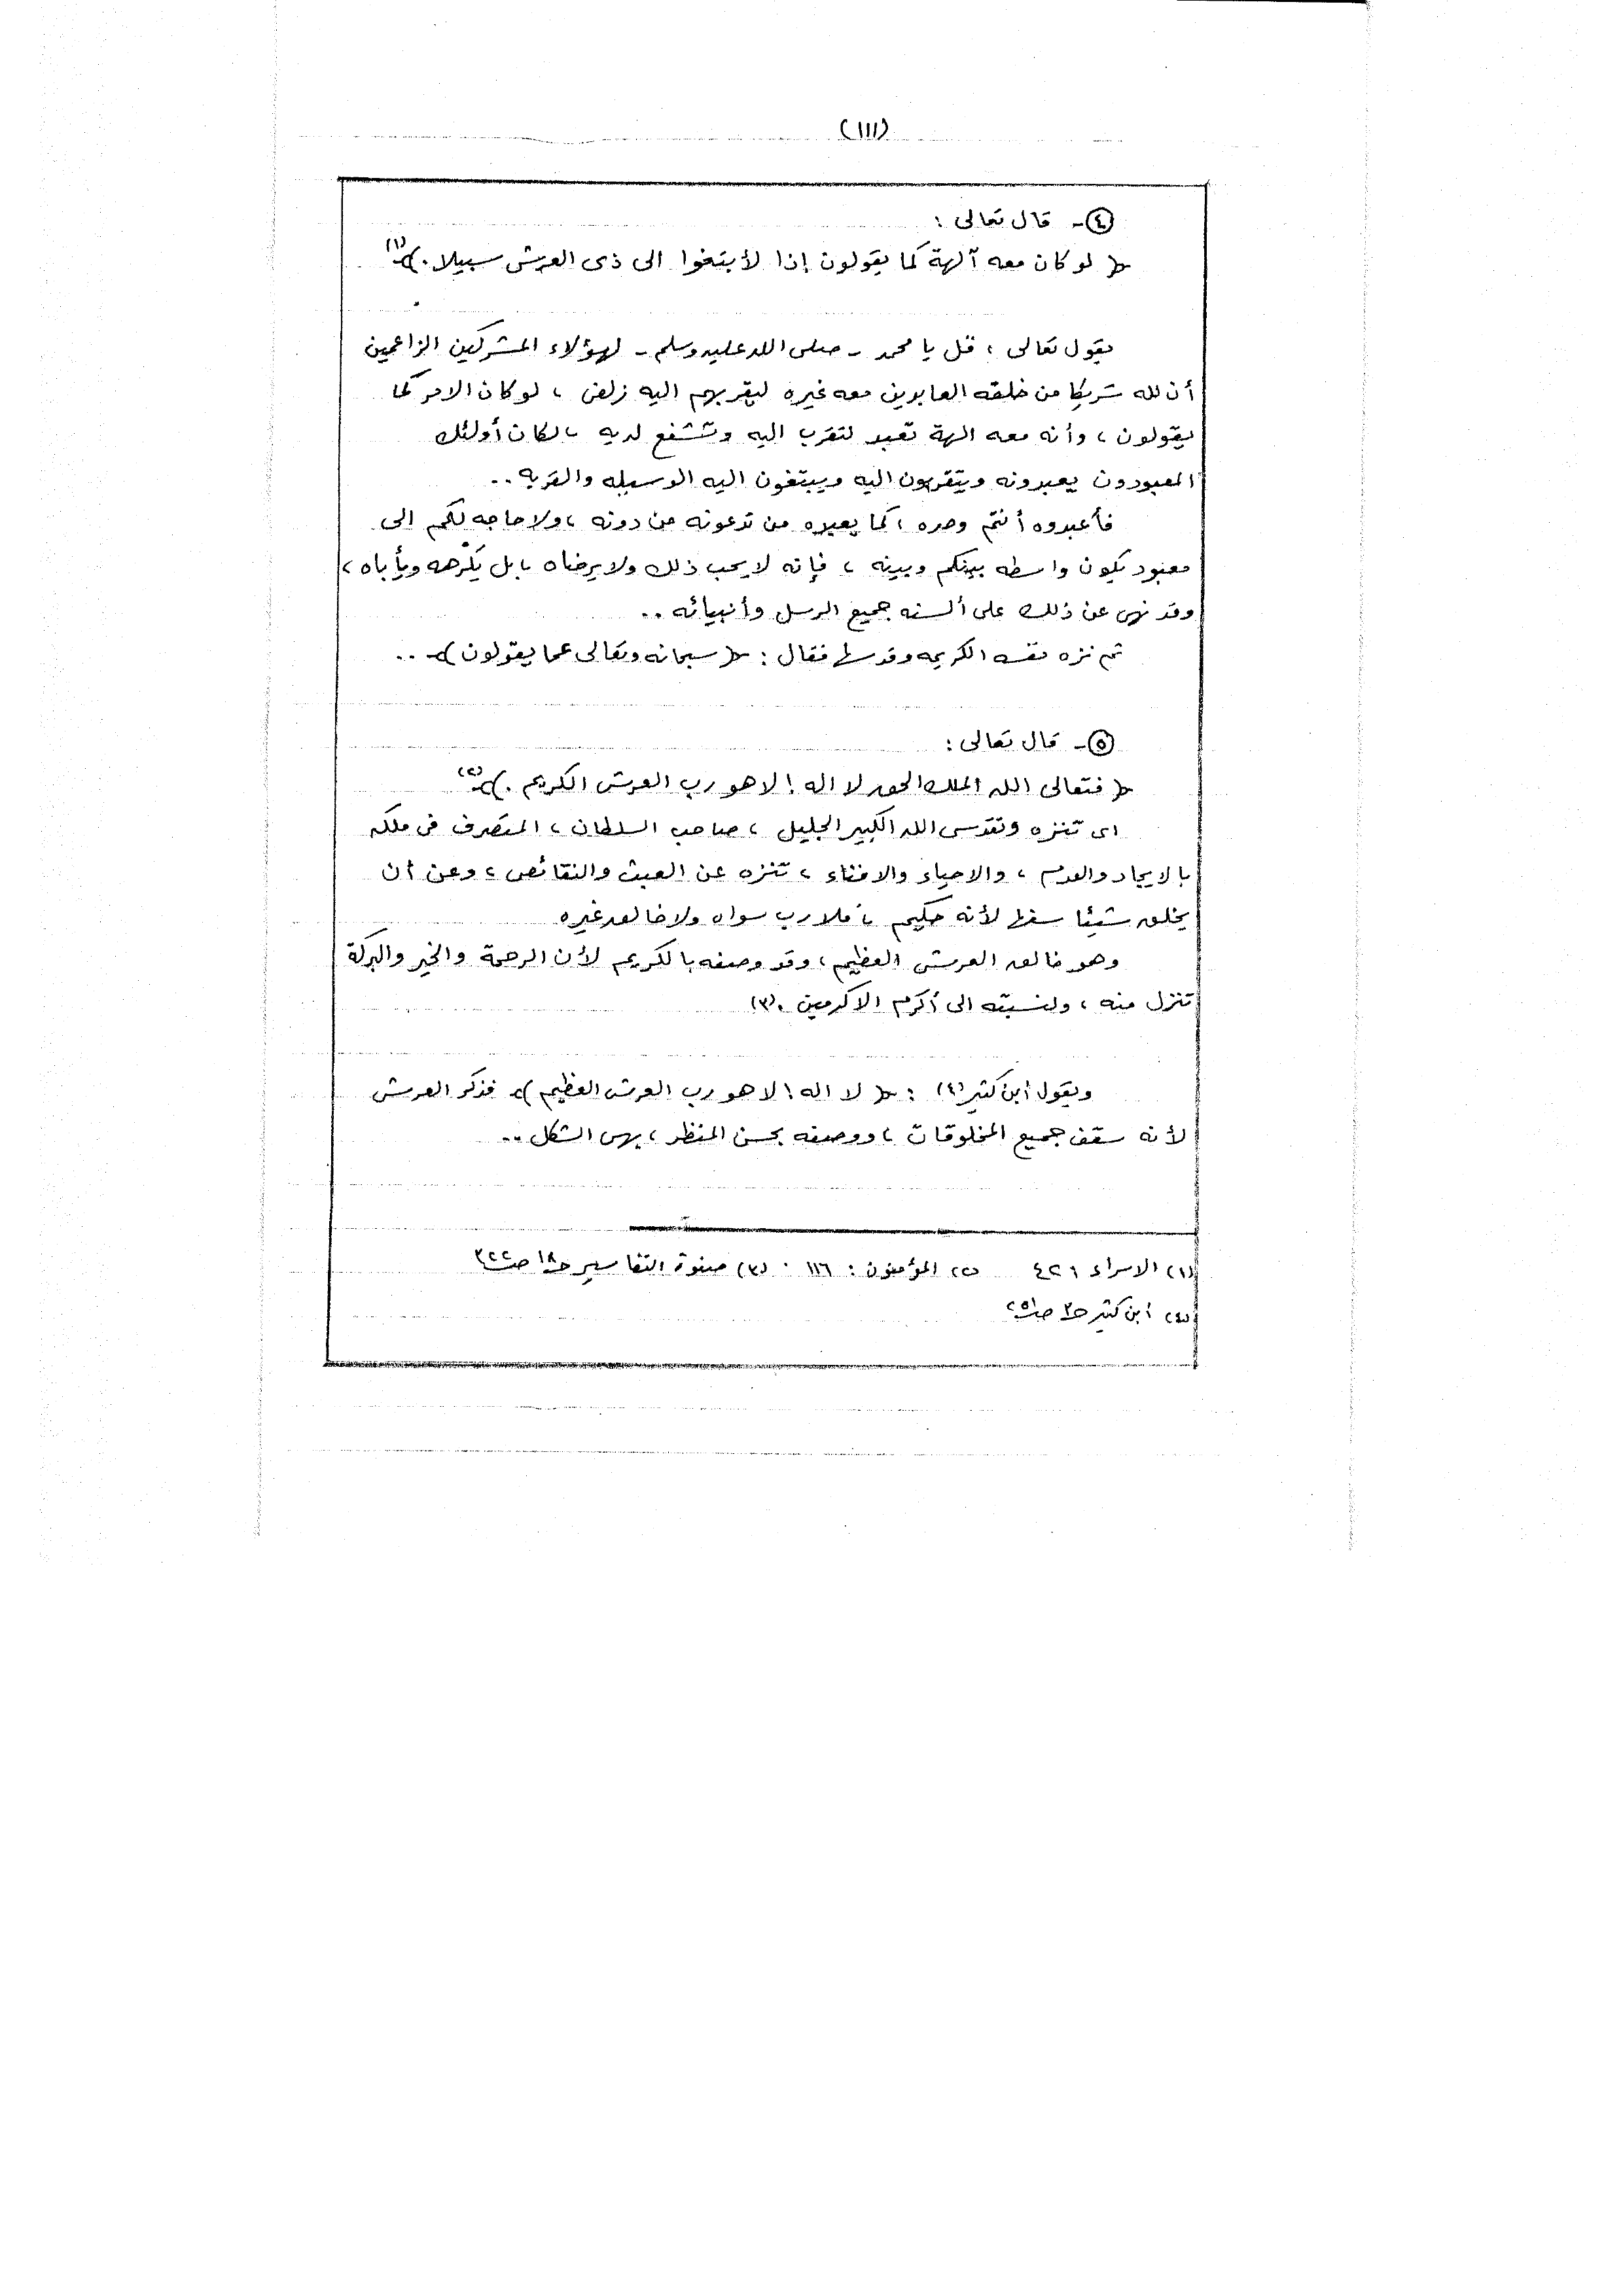 (١١١)
(٤)- قال تعالى :
﴿ لو كان معه آلهة كما يقولون إذا لأبتغوا الى ذى العرش سبيلا . ﴾ (١)
يقول تعالى ، قل يا محمد - صلى الله عليه وسلم - لهؤلاء المشركين الزاعمين
أن لله شريكا من خلقه العابدين معه غيره ليقربهم اليه زلفى ، لو كان الامر كما
يقولون ، وأنه معه الهة تعبد لتقرب اليه وتشفع لديه ، لكان أولئك
المعبودون يعبدونه ويتقربون اليه ويبتغون اليه الوسيله والقربه ..
فأعبدوه أنتم وحده ، كما يعبده من تدعونه من دونه ، ولا حاجه لكم الى
معبود يكون واسطه بينكم وبينه ، فإنه لا يحب ذلك ولا يرضاه ، بل يكرهه ويأباه ،
وقد نهى عن ذلك على ألسنه جميع الرسل وأنبيائه ..
ثم نزه نفسه الكريمه وقدسها فقال : ﴿ سبحانه وتعالى عما يقولون ﴾ ..
(٥)- قال تعالى :
﴿ فتعالى الله الملك الحق لا اله إلا هو رب العرش الكريم . ﴾ (٢)
اى تنزه وتقدس الله الكبير الجليل ، صاحب السلطان ، المتصرف فى ملكه
بالايجاد والعدم ، والاحياء والافناء ، تنزه عن العبث والنقائص ، وعن أن
يخلق شيئا سفها لأنه حكيم ، فلا رب سواه ولا خالق غيره
وهو خالق العرش العظيم ، وقد وصفه بالكريم لأن الرحمة والخير والبركة
تنزل منه ، ولنسبته الى أكرم الاكرمين . (٣)
ويقول أبن كثير (٤) : ﴿ لا اله إلا هو رب العرش العظيم ﴾ فذكر العرش
لأنه سقف جميع المخلوقات ، ووصفه بحسن المنظر ، بهى الشكل ..
(١) الاسراء ٤٢ (٢) المؤمنون : ١١٦ . (٣) صفوة التفاسير ح١٨ ص٣٢٢
(٤) أبن كثير ح٣ ص٢٥